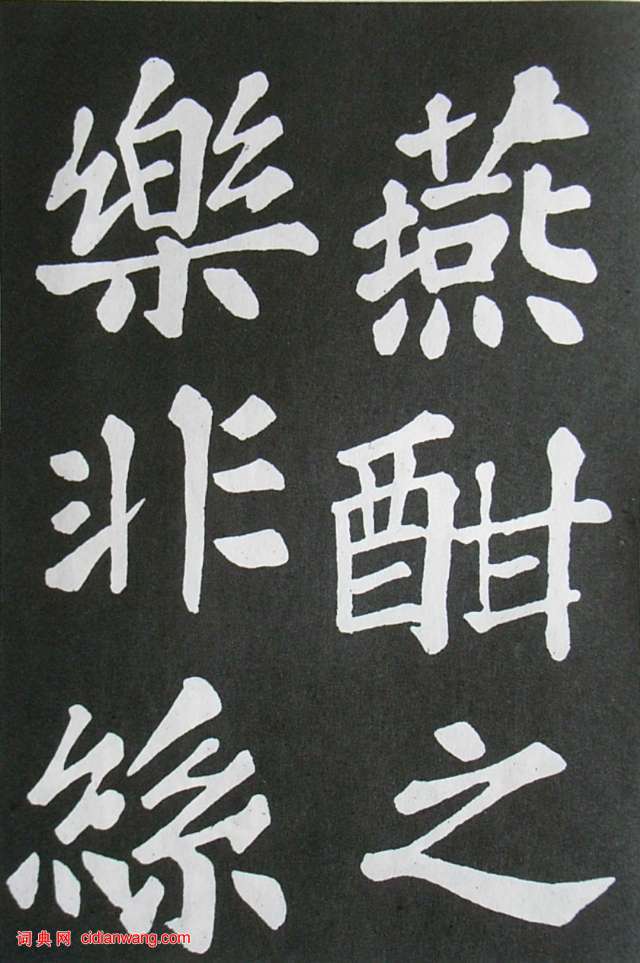 燕酣之
樂非絲
词典网 cidianwang.com